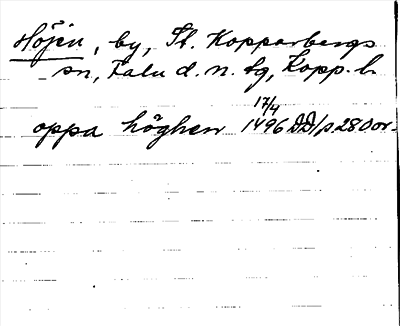 Höjen, by, St. Kopparbergs
sn, Falu d. n. tg, Kopp. l.
17/4
oppa höghen 1496 DD1 s. 280 or.